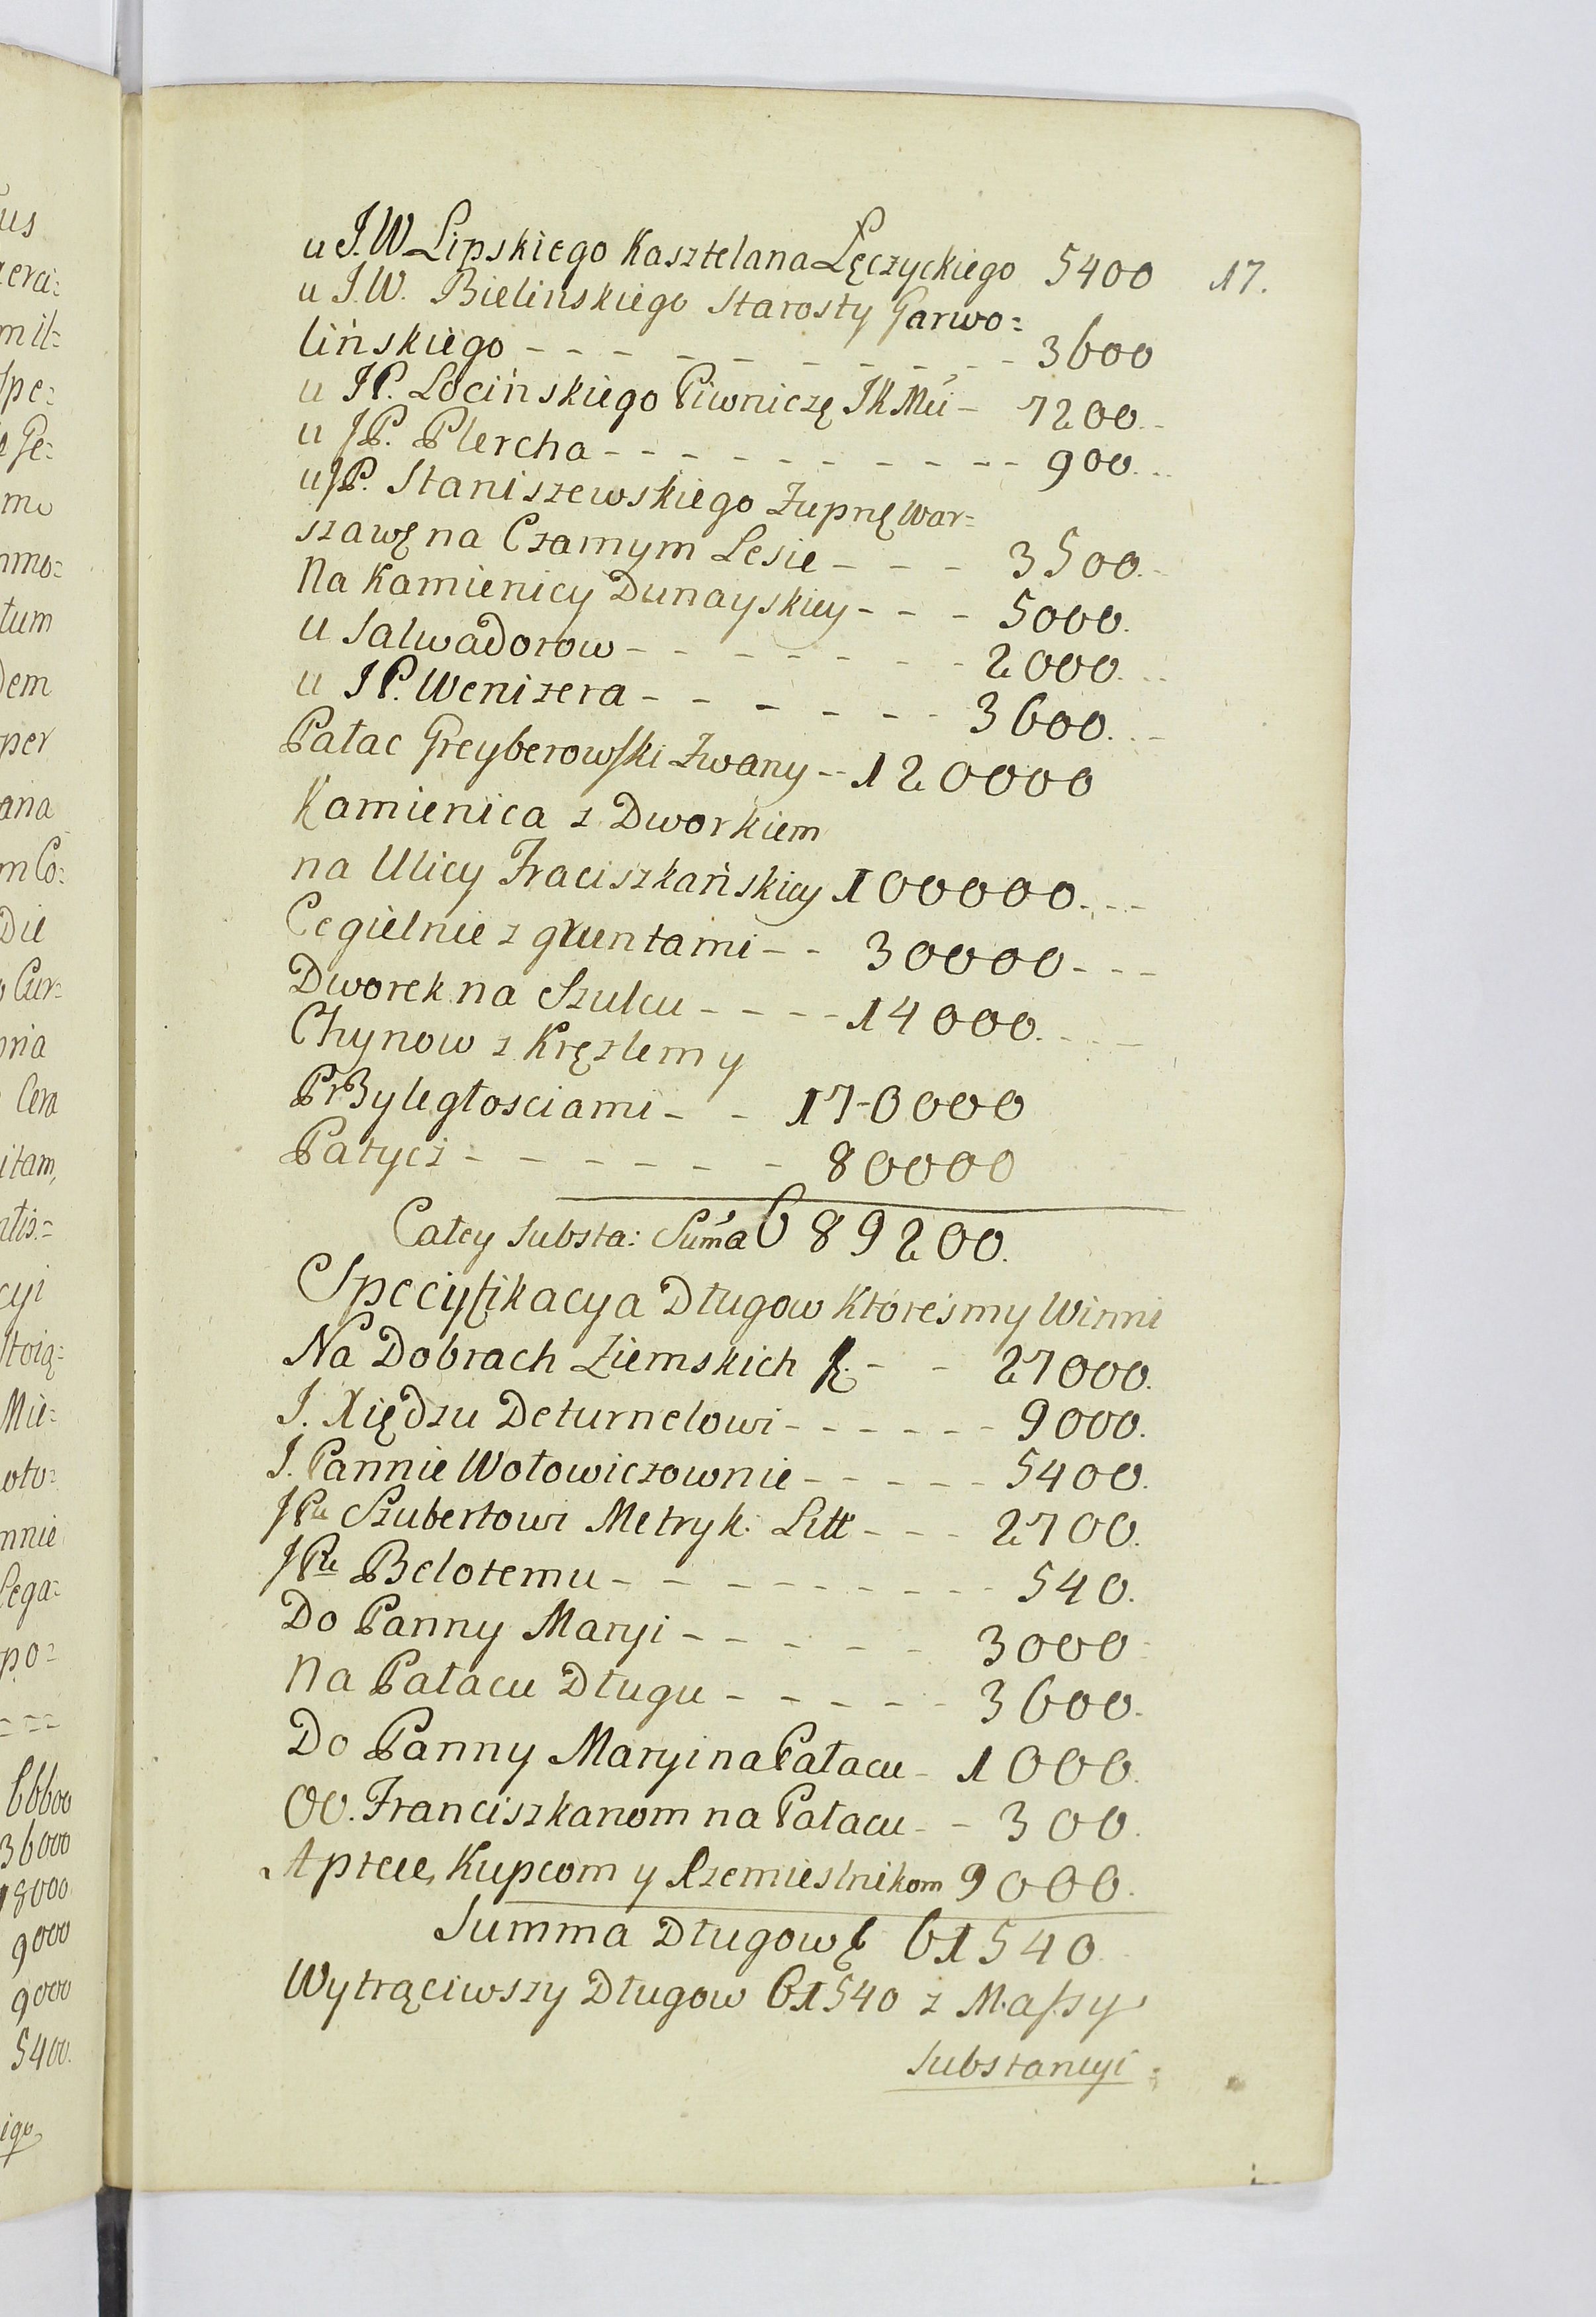 17.
u J.W Lipskiego Kasztelana Łęczyckiego 5400
u J.W. Bielinskiego Starosty Garwo=
lińskiego - - - - - - - - - - 3600
u JP. Locińskiego Piwniczę JKMći - 7200.
u JP. Plercha - - - - - - - - - - 900.
u JP. Staniszewskiego Żupnę War=
szawę na Czarnym Lesie - - - 3500.
Na Kamienicy Dunayskiey - - - 5000.
u Salwadorow - - - - - - - 2000.
u JP. Wenizera - - - - - - 3600.
Pałac Greyberowski Zwany - - 120000
Kamienica z Dworkiem
na Ulicy Fraciszkańskiey 100000. - - -
Cegielnie z gruntami - - 30000 - - -
Dworek na Szulcu - - - - 14000. - - -
Chynow z Kręzlem y
Przyległosciami - - 170000
Patycż - - - - - - 80000
Całey Substa: Sum̃a 689200.
Specyfikacya Długow któreśmy Winni
Na Dobrach Ziemskich - - 27000.
J. Xiędzu Deturnelowi - - - - - - 9000.
J. Pannie Wołowiczownie - - - - - 5400.
JPu Szubertowi Metryk: Litt - - - 2700.
JPu Belotemu - - - - - - - - - 540.
Do Panny Maryi - - - - - 3000
Na Pałacu Długu - - - - - 3600.
Do Panny Maryi na Pałacu - 1000.
OO. Franciszkanom na Pałacu - - 300.
Aptece, Kupcom y Rzemieslnikom 9000.
Summa Długow 61540
Wytrąciwszy Długow 61540 z Massy
Substancyi
66600
36000
18000
9000
9000
5400.